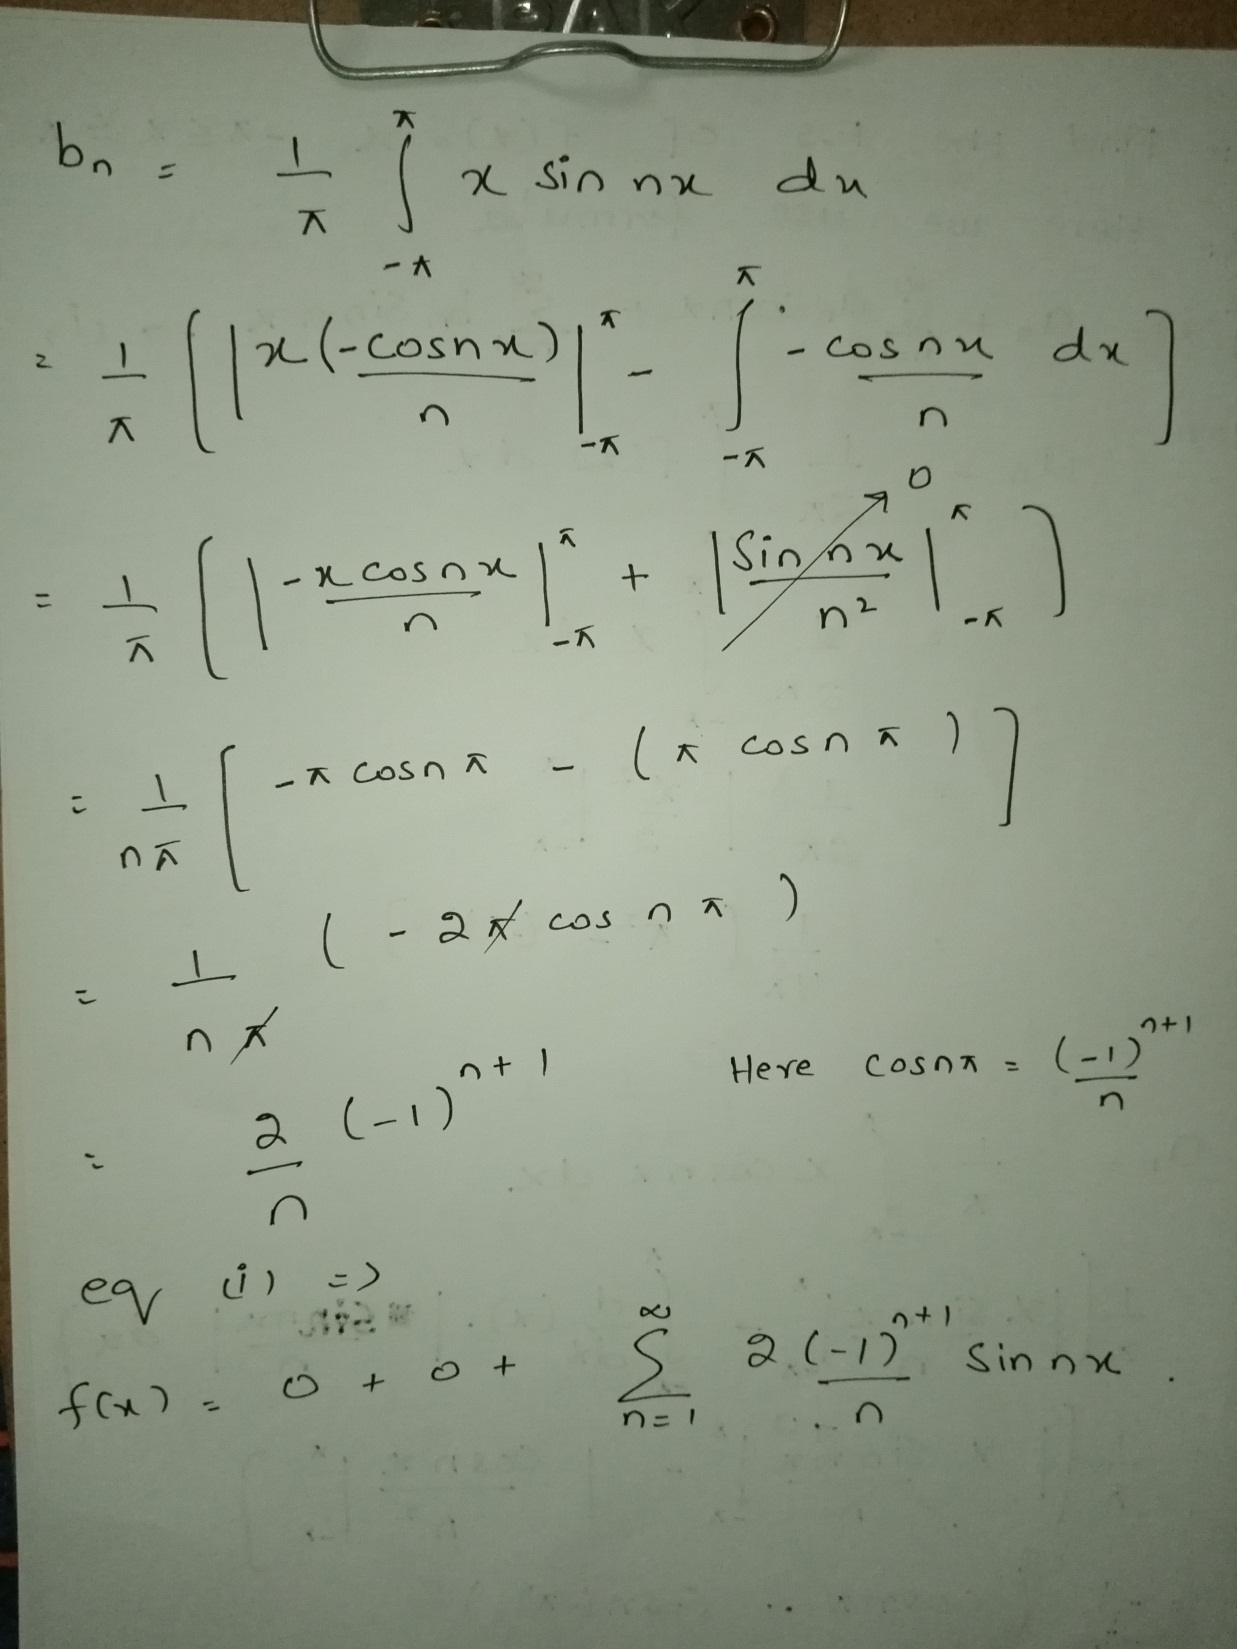 bn = 1/π ∫_{-π}^{π} x sin nx dx
= 1/π [ | x (-cosnx)/n |_{-π}^{π} - ∫_{-π}^{π} -cosnx/n dx ]
= 1/π [ | -x cosnx/n |_{-π}^{π} + | Sin nx/n² |_{-π}^{π} ] → 0
= 1/nπ [ -π cosnπ - (π cosnπ) ]
= 1/nπ ( -2π cos nπ )
= 2/n (-1)^{n+1} Here cosnπ = (-1)^{n+1}/n
eq (i) =>
f(x) = 0 + 0 + ∑_{n=1}^{∞} 2(-1)^{n+1}/n sin nx .